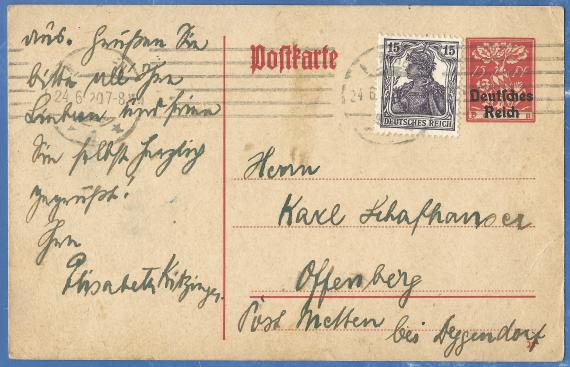 aus. Grüßen Sie
bitte all Ihre
Lieben und seien
Sie selbst herzlich
gegrüßt!
Ihre
Elisabeth Kitzinger
Postkarte
24.6.20.7-8
15 15
DEUTSCHES REICH
15
Deutsches
Reich
Herrn
Karl Schafhauser
Offenberg
Post Metten bei Deggendorf